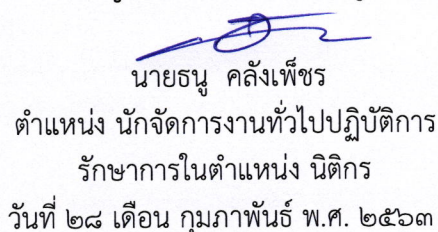 นายธนู คลังเพ็ชร
ตำแหน่ง นักจัดการงานทั่วไปปฏิบัติการ
รักษาการในตำแหน่ง นิติกร
วันที่ ๒๘ เดือน กุมภาพันธ์ พ.ศ. ๒๕๖๓